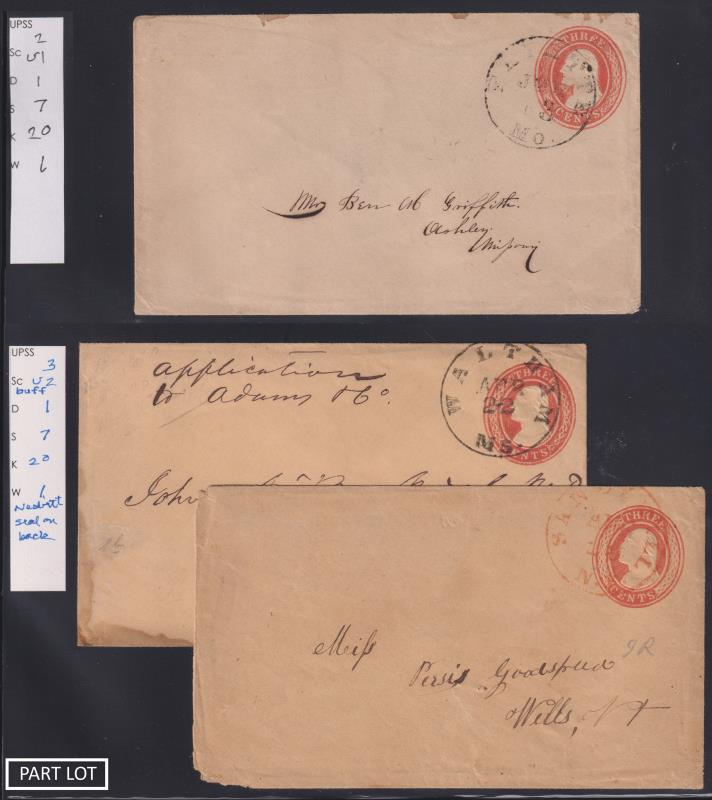 UPSS
2
Sc U1
D 1
S 7
K 20
W 1
THREE
CENTS
MO
Mr Ben
Griffith.
Ashley
Missouri
UPSS
3
Sc U2
buff
D 1
S 7
K 20
W 1
Nesbitt
seal on
back
application
to Adams & Co.
WALTHAM
APR
22
MS
THREE
CENTS
John
15
THREE
CENTS
Miss
9R
Persis Goodspeed
Wells,
PART LOT